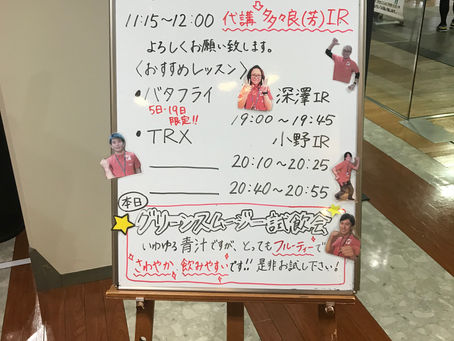 11:15~12:00 代講 多々良(芳)IR
よろしくお願い致します。
〈おすすめレッスン〉
・バタフライ 深澤IR
5日・19日
限定!!
19:00~19:45
・TRX 小野IR
20:10~20:25
20:40~20:55
本日
グリーンスムージー試飲会
いわゆる青汁ですが、とってもフルーティーで
さわやか 飲みやすいです!! 是非お試し下さい!